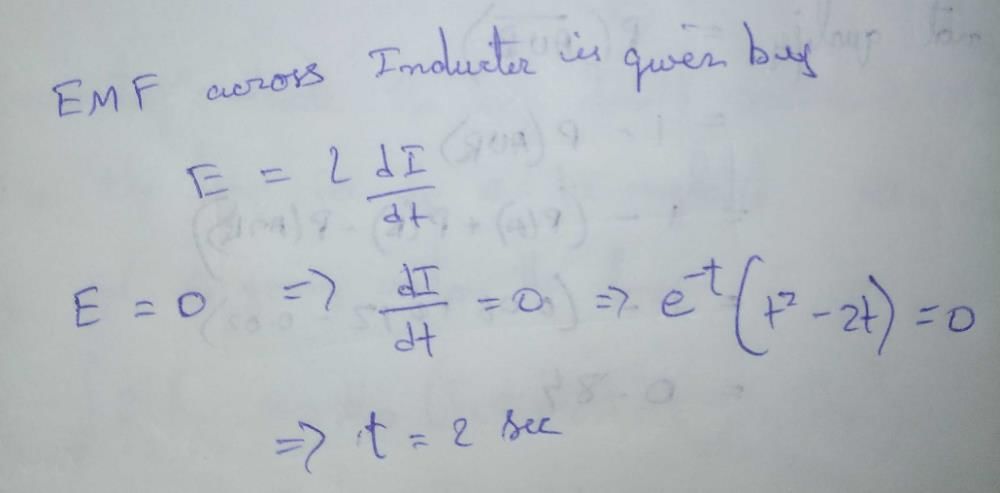 EMF across Inductor is given by
E = L dI/dt
E = 0 ⇒ dI/dt = 0 ⇒ e^-t (t² - 2t) = 0
⇒ t = 2 sec